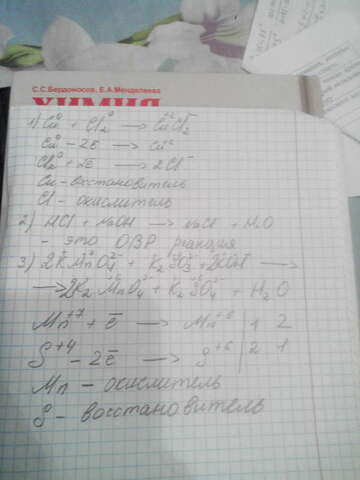 С.С.Бердоносов, Е.А.Менделеева
ХИМИЯ
1) Cu⁰ + Cl₂⁰ → Cu⁺²Cl₂⁻
Cu⁰ - 2ē → Cu⁺²
Cl₂⁰ + 2ē → 2Cl⁻
Cu - восстановитель
Cl - окислитель
2) HCl + NaOH → NaCl + H₂O
- это ОВР реакция
3) 2KMnO₄ + K₂SO₃ + 2KOH →
→ 2K₂MnO₄ + K₂SO₄ + H₂O
Mn⁺⁷ + ē → Mn⁺⁶ | 1 | 2
S⁺⁴ - 2ē → S⁺⁶ | 2 | 1
Mn - окислитель
S - восстановитель